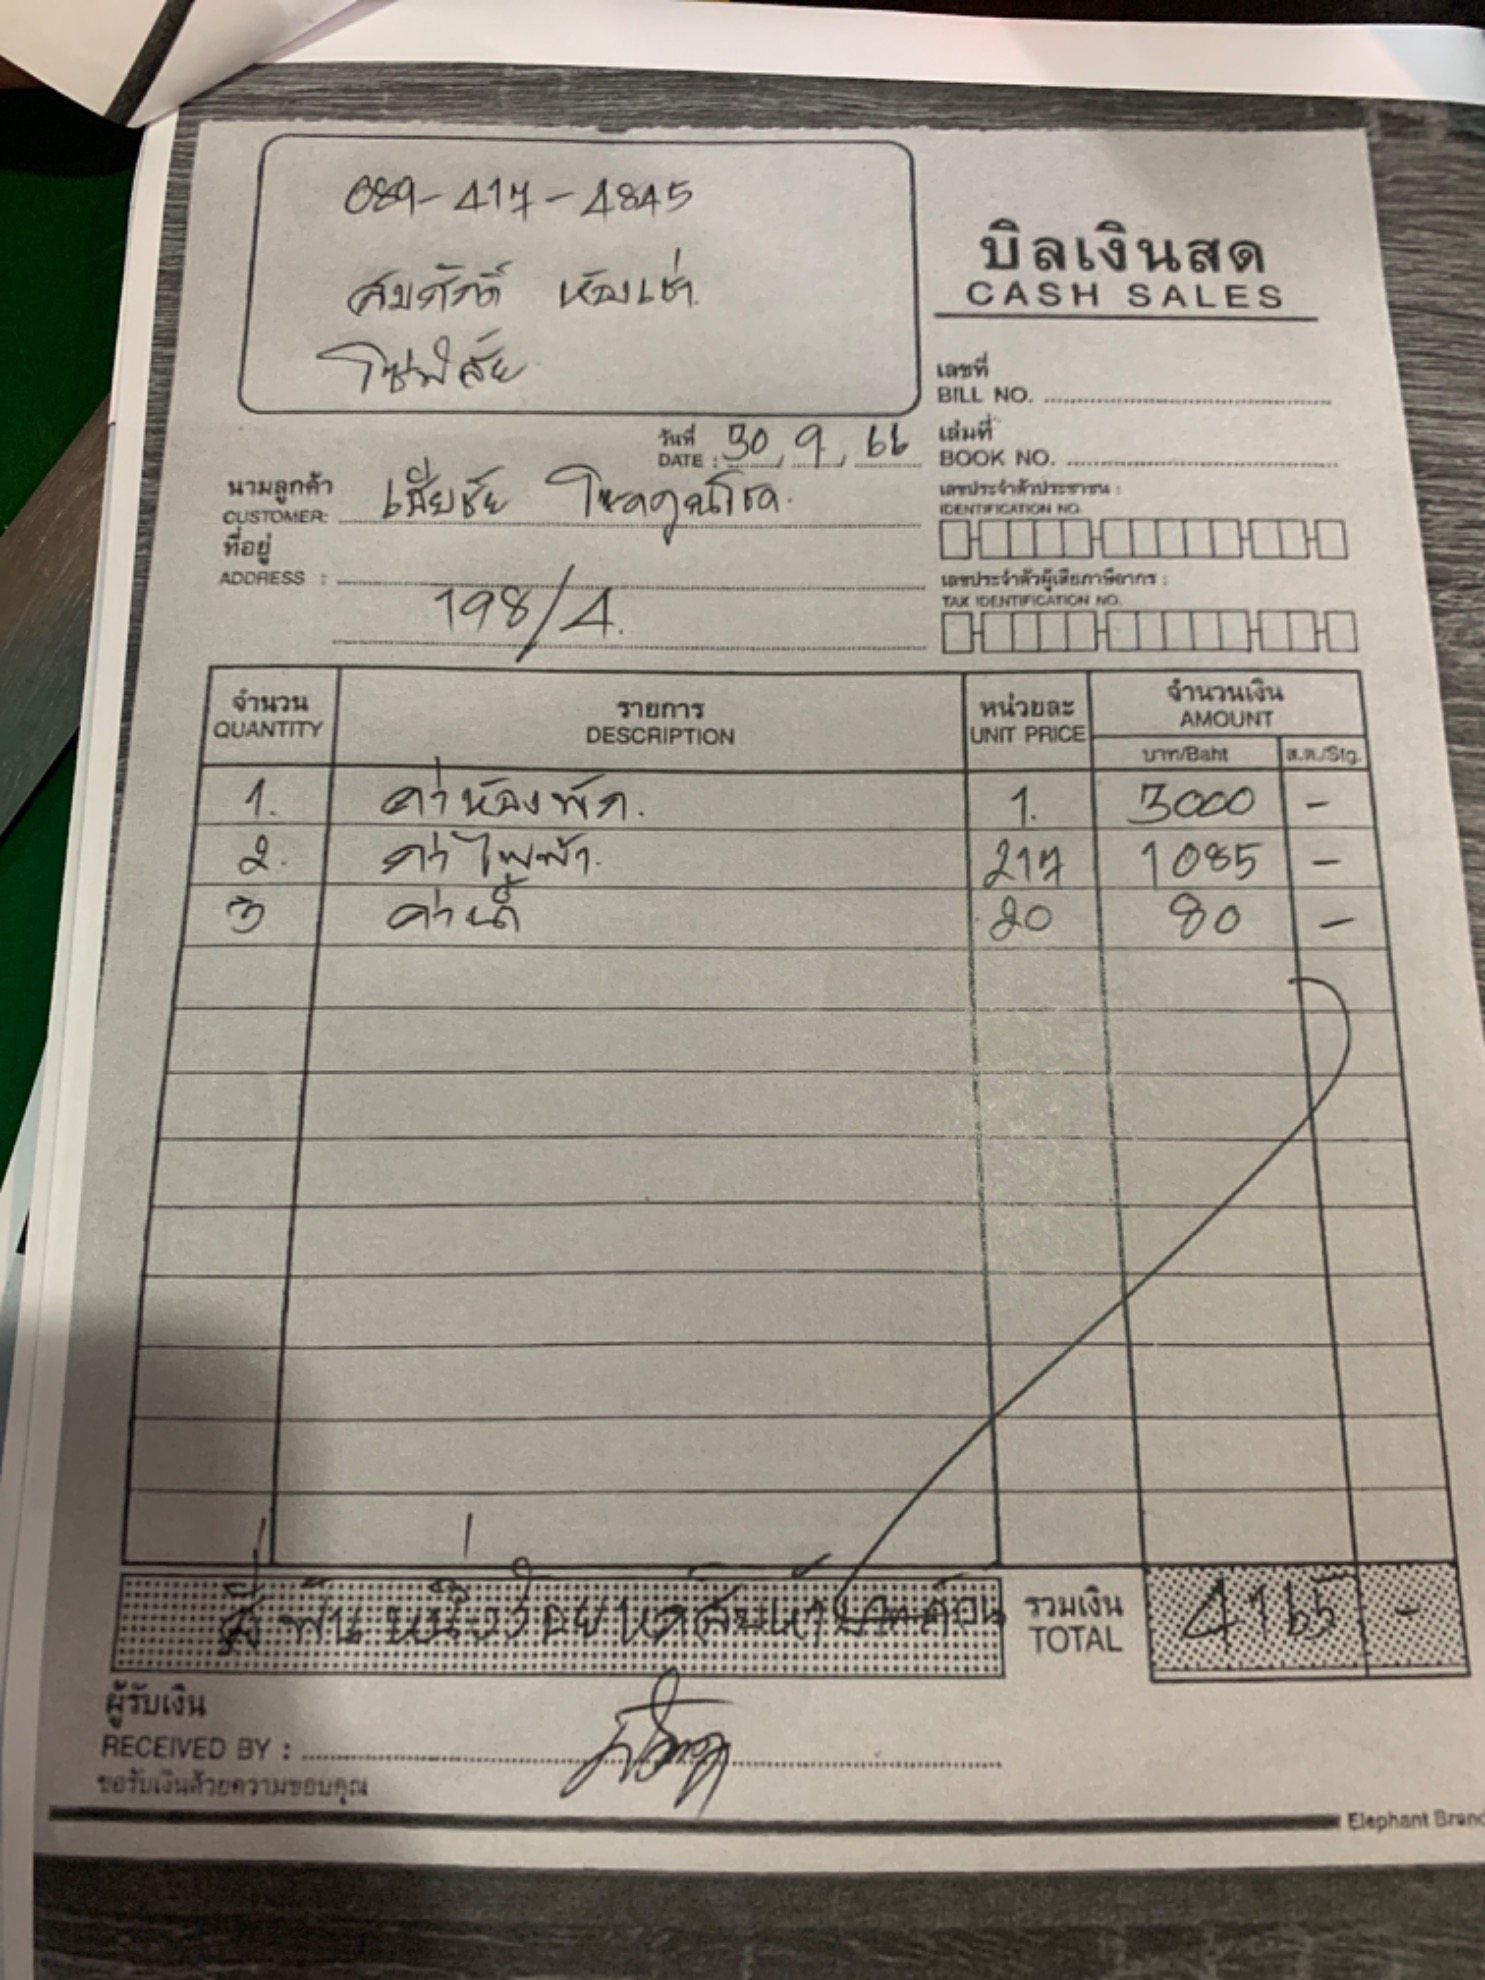 089-417-4845
สมศักดิ์ ห้องเช่า
โซ่พิสัย
บิลเงินสด
CASH SALES
เลขที่
BILL NO.
วันที่
DATE : 30, 9, 66
เล่มที่
BOOK NO.
นามลูกค้า
CUSTOMER: เฮียชัย โชคคูณโชค
เลขประจำตัวประชาชน :
IDENTIFICATION NO.
ที่อยู่
ADDRESS :
198/4.
เลขประจำตัวผู้เสียภาษีอากร :
TAX IDENTIFICATION NO.
จำนวน รายการ หน่วยละ จำนวนเงิน
QUANTITY DESCRIPTION UNIT PRICE AMOUNT
บาท/Baht ส.ต./Stg.
1. ค่าห้องพัก. 1. 3000 -
2. ค่าไฟฟ้า. 217 1085 -
3 ค่าน้ำ 20 80 -
สี่พันหนึ่งร้อยหกสิบห้าบาทถ้วน รวมเงิน 4165 -
TOTAL
ผู้รับเงิน
RECEIVED BY :
ขอรับเงินด้วยความขอบคุณ
Elephant Brand